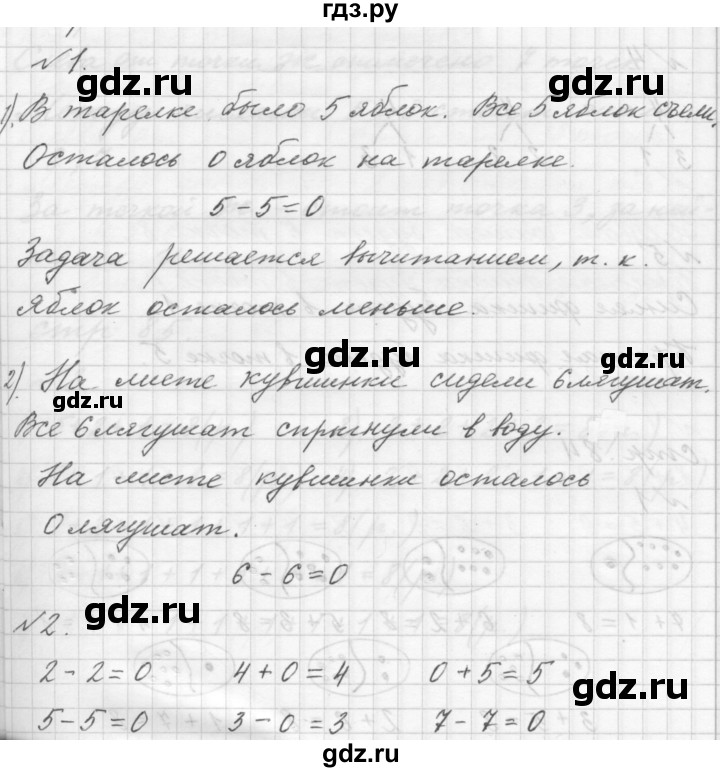 гдз.ру
№1.
1). В тарелке было 5 яблок. Все 5 яблок съели.
Осталось 0 яблок на тарелке.
5-5=0
Задача решается вычитанием, т. к.
яблок осталось меньше.
2). На листе кувшинки сидели 6 лягушат.
Все 6 лягушат спрыгнули в воду.
На листе кувшинки осталось
0 лягушат.
6-6=0
№2.
2-2=0 4+0=4 0+5=5
5-5=0 3-0=3 7-7=0
gdz.ru
gdz.ru
gdz.ru
gdz.ru
gdz.ru
gdz.ru
gdz.ru
gdz.ru
gdz.ru
gdz.ru
gdz.ru